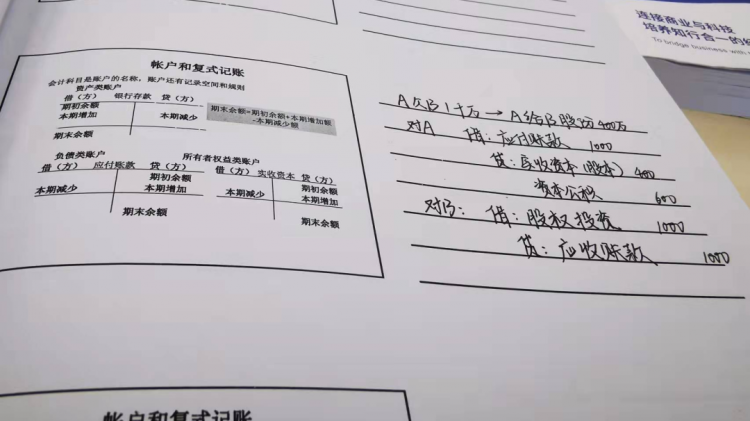 连接商业与科技
培养知行合一的
To bridge business with
帐户和复式记账
会计科目是账户的名称，账户还有记录空间和规则
资产类账户
借（方） 银行存款 贷（方）
期初余额
本期增加 本期减少
期末余额
期末余额=期初余额+本期增加额
-本期减少额
负债类账户 所有者权益类账户
借（方） 应付账款 贷（方） 借（方） 实收资本 贷（方）
期初余额 期初余额
本期减少 本期增加 本期减少 本期增加
期末余额 期末余额
A欠B1千万→A给B股份400万
对A 借：应付账款 1000
贷：实收资本（股本） 400
资本公积 600
对B： 借：股权投资 1000
贷：应收账款 1000
帐户和复式记账